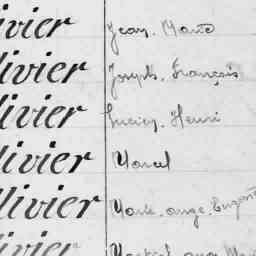 ivier Jean, Marie
livier Joseph, François
livier Lucien, Henri
livier Marcel
livier Marie, ange, Eugén
ivier